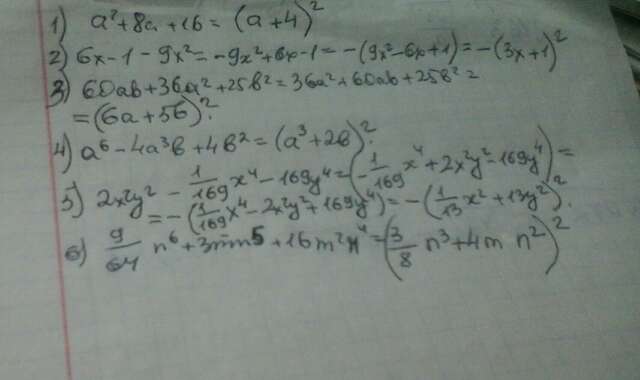 1) a²+8a+16=(a+4)²
2) 6x-1-9x²=-9x²+6x-1=-(9x²-6x+1)=-(3x+1)²
3) 60ab+36a²+25b²=36a²+60ab+25b²=
=(6a+5b)².
4) a⁶-4a³b+4b²=(a³+2b)².
5) 2x²y²-1/169x⁴-169y⁴=(-1/169x⁴+2x²y²-169y⁴)=
=-(1/169x⁴-2x²y²+169y⁴)=-(1/13x²+13y²)².
6) 9/64 n⁶+3mn5+16m²n⁴=(3/8 n³+4m n²)²